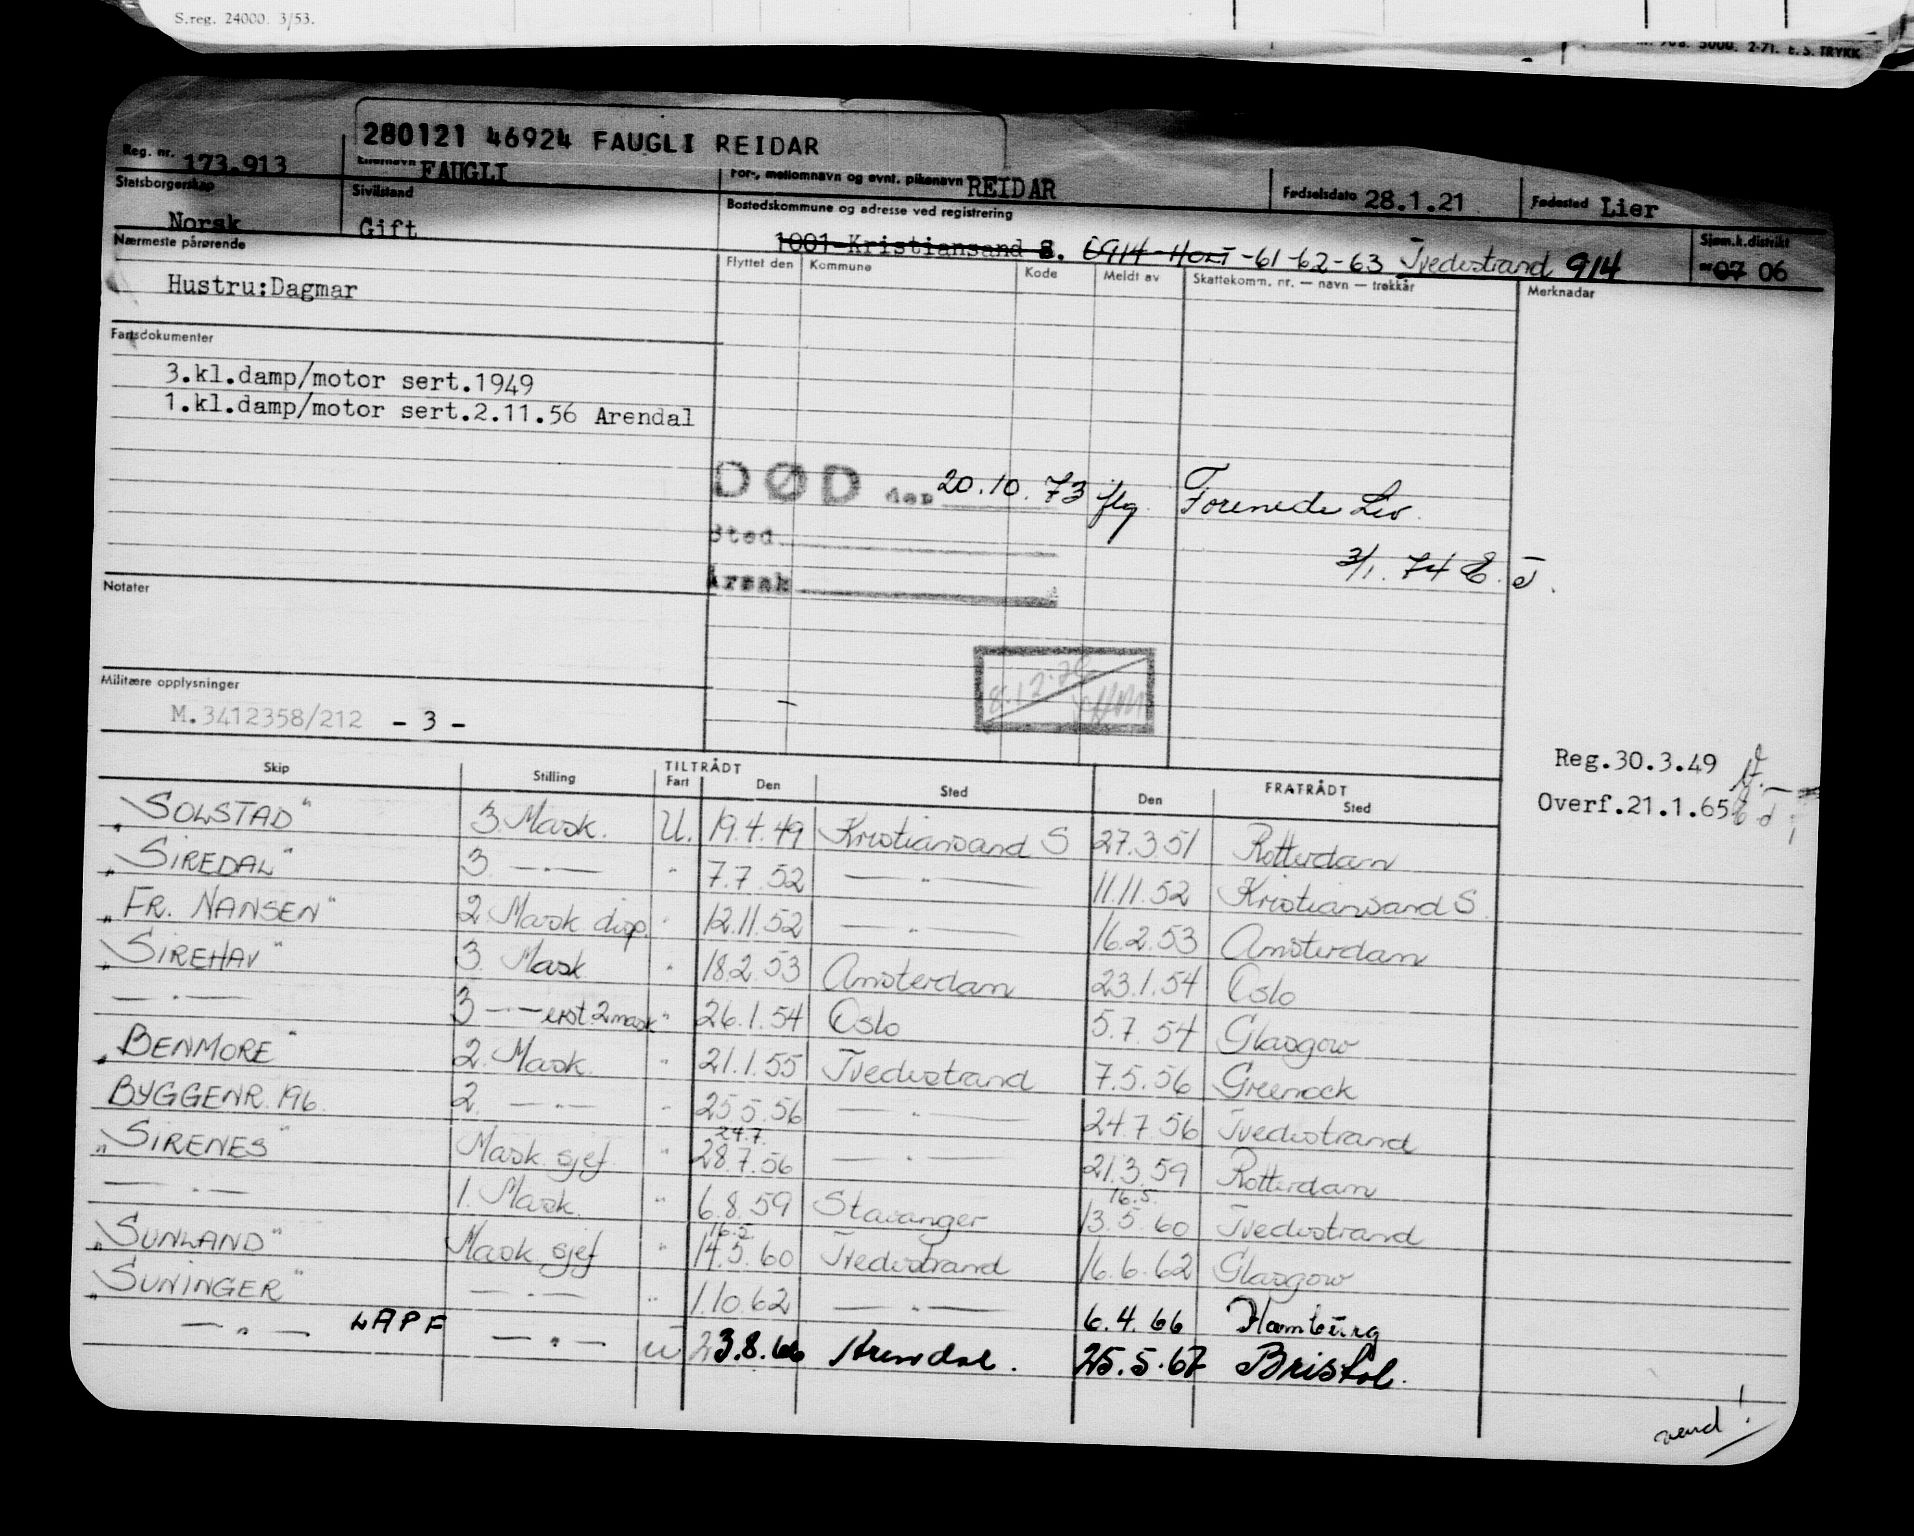 S.reg. 24000. 3/53.
5000. 2-71. E.S. TRYKK
280121 46924 FAUGLI REIDAR
Reg. nr. 173.913 Etternavn FAUGLI For-, mellomnavn og evnt. pikenavn REIDAR Fødselsdato 28.1.21 Fødested Lier
Statsborgerskap Norsk Sivilstand Gift Bostedskommune og adresse ved registrering 1001-Kristiansand S. 0914-HOLT-61-62-63 Tvedestrand 914 Sjøm.k.distrikt 07 06
Nærmeste pårørende Flyttet den Kommune Kode Meldt av Skattekomm. nr. — navn — trekkår Merknadar
Hustru:Dagmar
Fartsdokumenter
3.kl.damp/motor sert.1949
1.kl.damp/motor sert.2.11.56 Arendal
DØD den 20.10.73 flg. Forenede Liv.
Sted
3/1. 74 E.J.
Årsak
Notater
Militære opplysninger
M.3412358/212 - 3 -
Reg.30.3.49
Overf.21.1.65
Skip Stilling TILTRÅDT Fart Den Sted FRATRÅDT Den Sted
"SOLSTAD" 3 Mask. U. 19.4.49 Kristiansand S 27.3.51 Rotterdam
"SIREDAL" 3. — " — " 7.7.52 — " — 11.11.52 Kristiansand S.
"FR. NANSEN" 2 Mask disp. " 12.11.52 — " — 16.2.53 Amsterdam
"SIREHAV" 3. Mask " 18.2.53 Amsterdam 23.1.54 Oslo
— " — 3 — " — erst. 2 mask " 26.1.54 Oslo 5.7.54 Glasgow
"BENMORE" 2. Mask. " 21.1.55 Tvedestrand 7.5.56 Greenock
BYGGENR. 196. 2. — " — " 25.5.56 — " — 24.7.56 Tvedestrand
24.7.
"SIRENES" Mask. sjef. " 28.7.56 — " — 21.3.59 Rotterdam
16.5.
— " — 1. Mask. " 6.8.59 Stavanger 13.5.60 Tvedestrand
16.5
"SUNLAND" Mask sjef " 14.5.60 Tvedestrand 16.6.62 Glasgow
"SUNINGER" — " — " 1.10.62 — " — 6.4.66 Hamburg
— " — LAPF — " — u 23.8.66 Arendal. 25.5.67 Bristol.
vend!